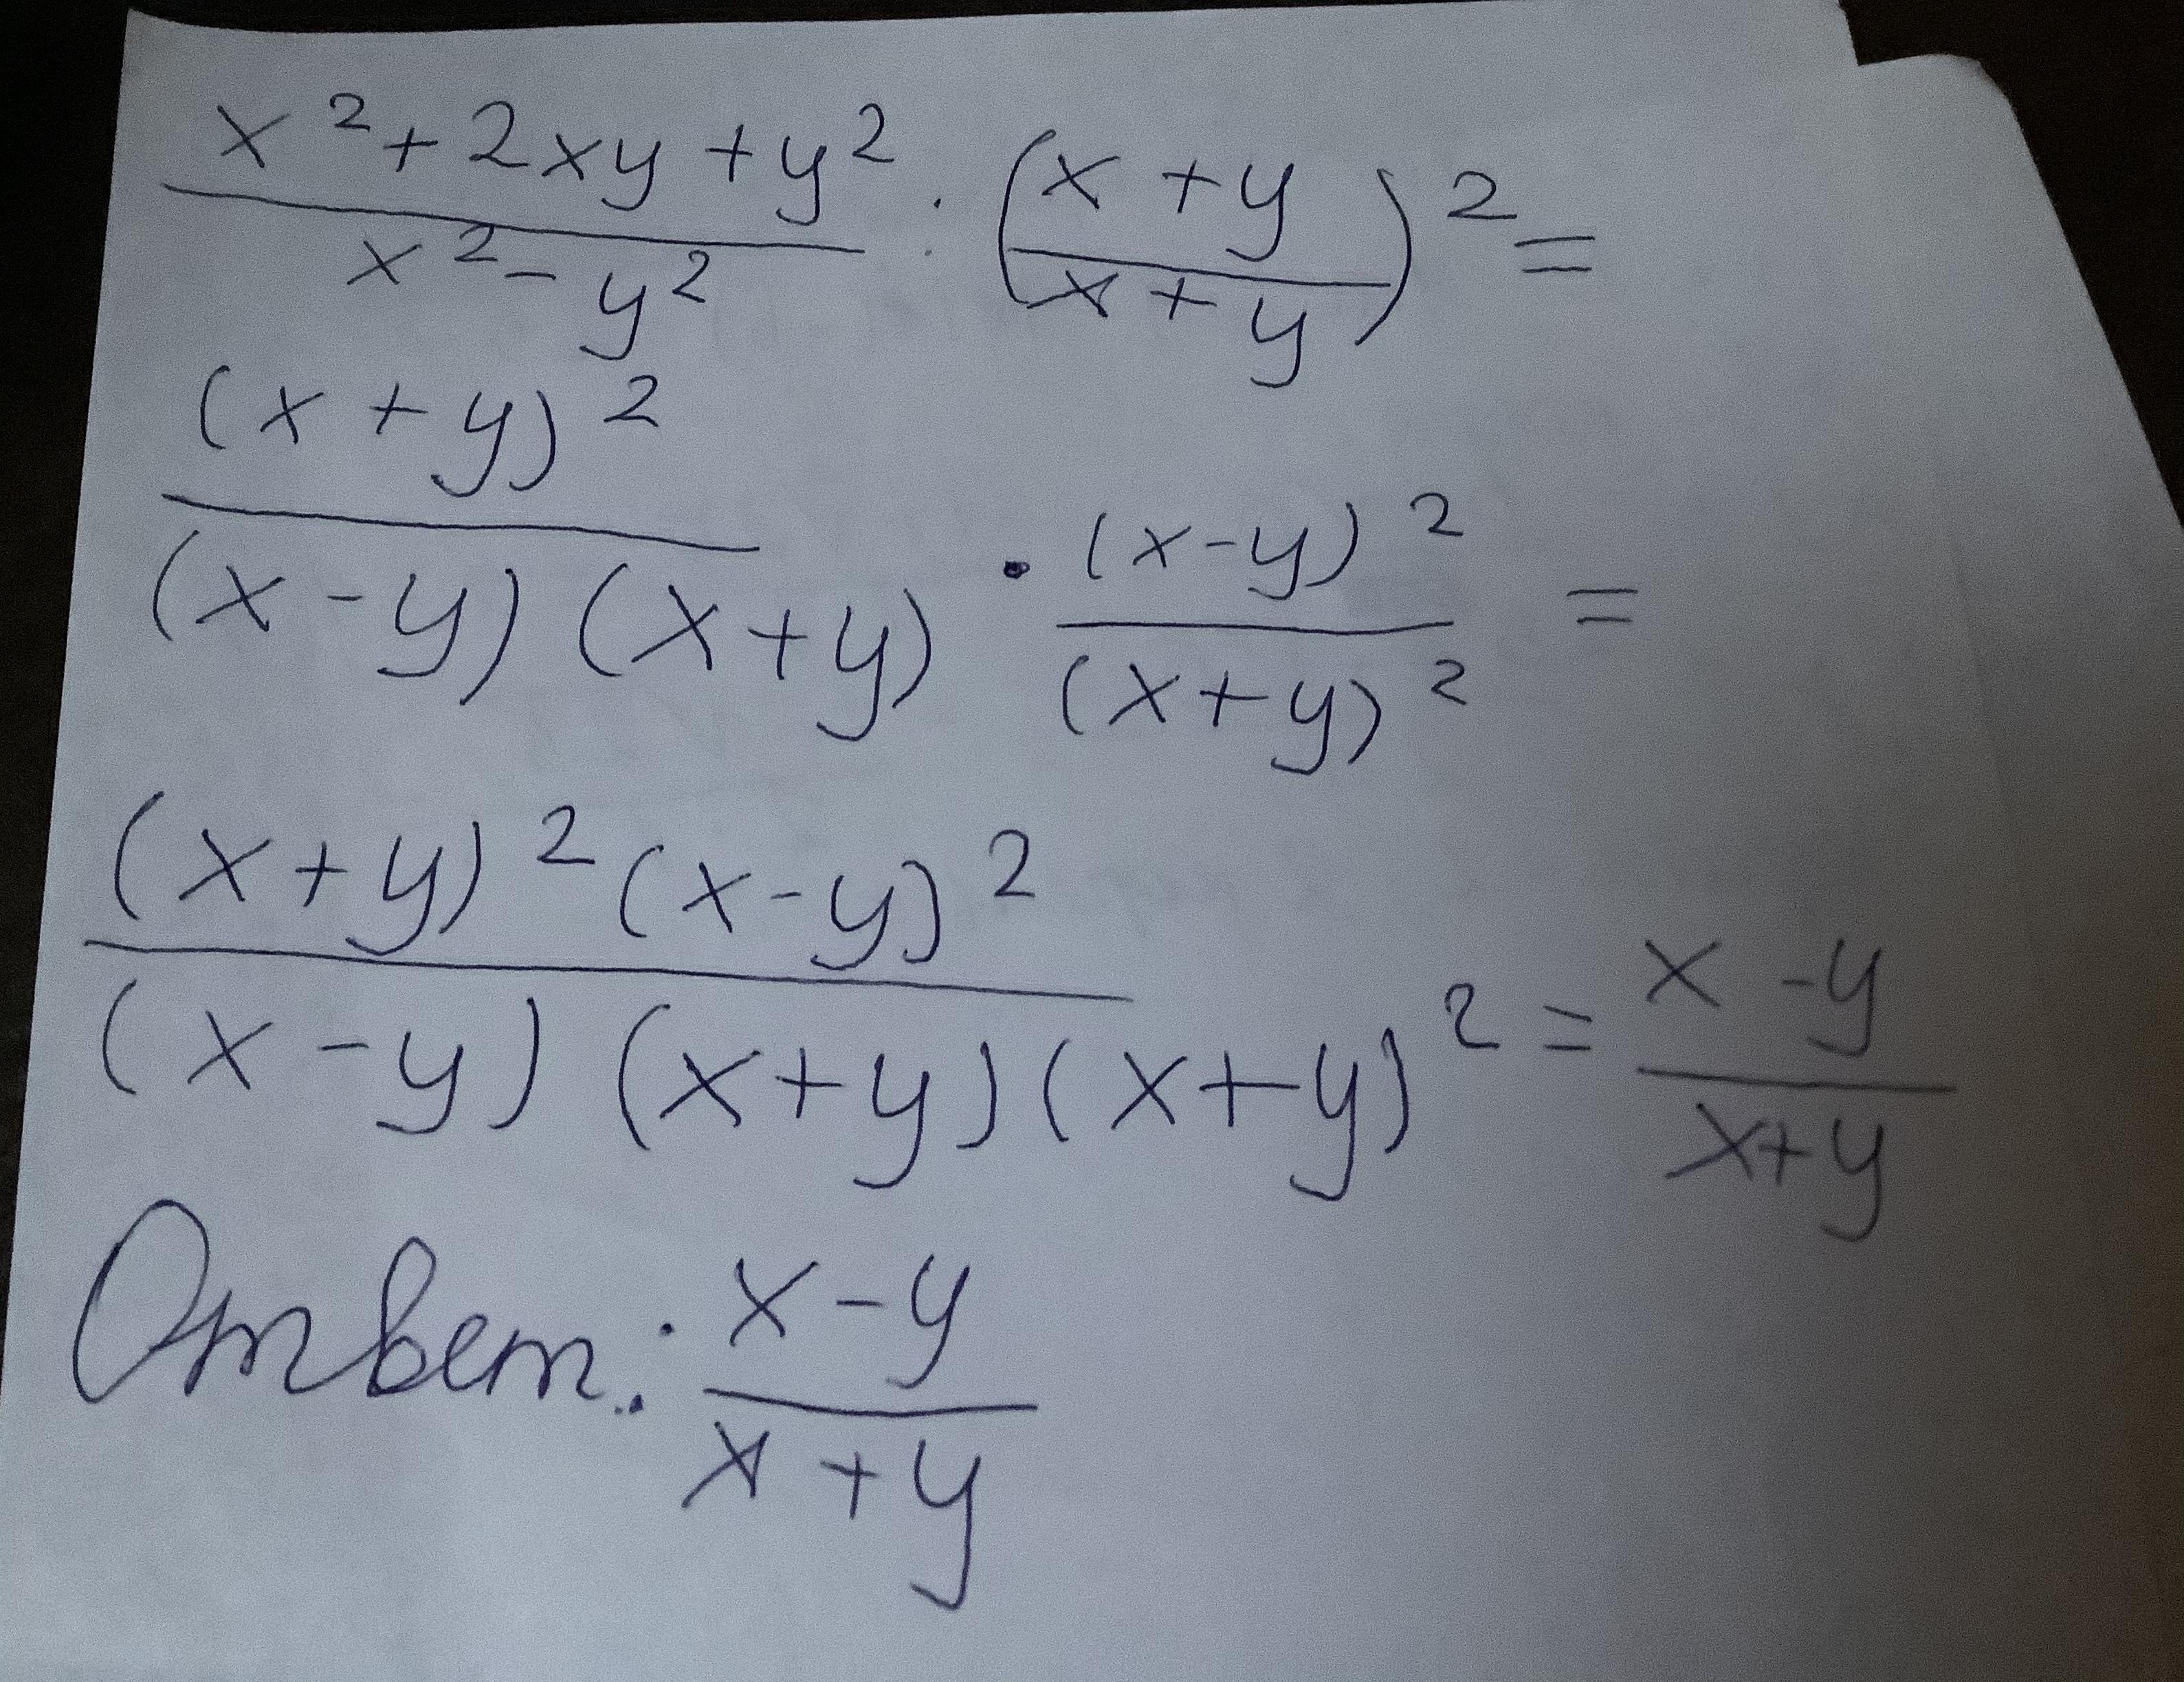 (x² + 2xy + y²)/(x² - y²) : ((x + y)/(x + y))² =
(x + y)²/((x - y)(x + y)) · (x - y)²/(x + y)² =
(x + y)²(x - y)²/((x - y)(x + y)(x + y)²) = (x - y)/(x + y)
Ответ: (x - y)/(x + y)